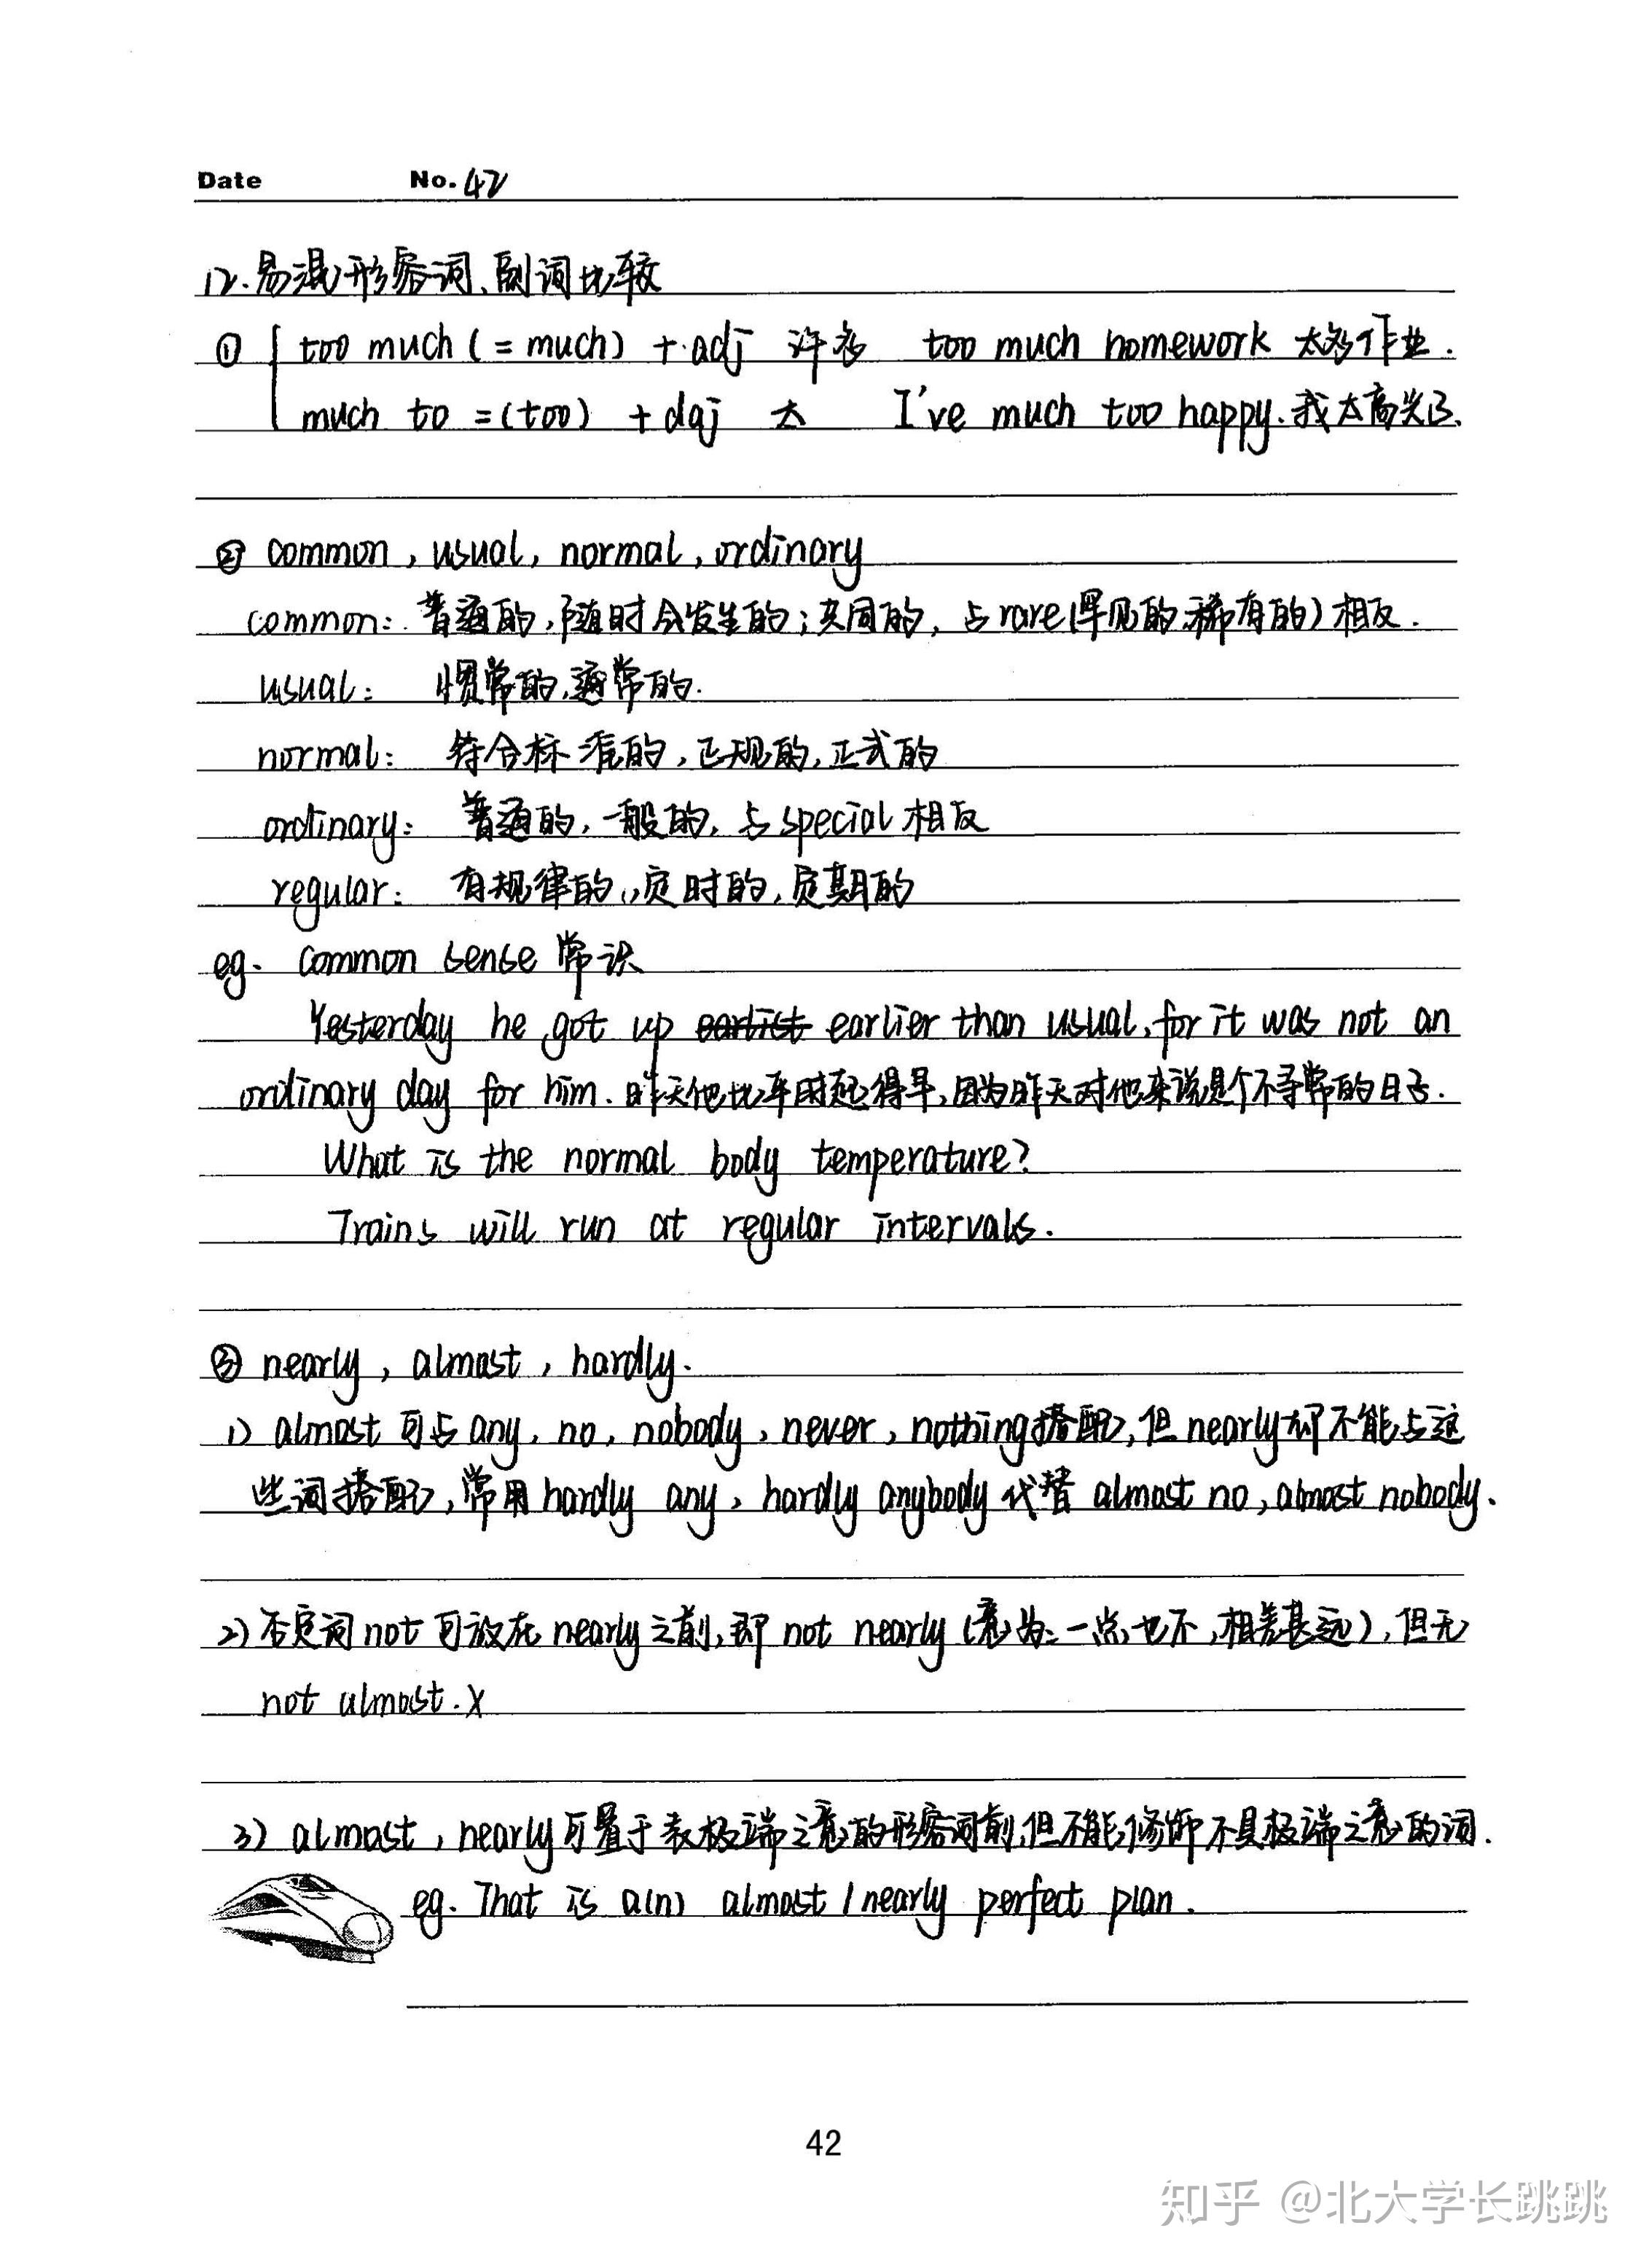 Date No. 42
12. 易混形容词、副词比较
① too much (= much) + adj 许多 too much homework 太多作业.
much to = (too) + daj 太 I've much too happy. 我太高兴了.
② common, usual, normal, ordinary
common: 普通的, 随时会发生的; 共同的, 与rare(罕见的,稀有的)相反.
usual: 惯常的,通常的.
normal: 符合标准的,正规的,正式的
ordinary: 普通的,一般的,与special相反
regular: 有规律的,定时的,定期的
eg. common sense 常识
Yesterday he got up earlist earlier than usual, for it was not an
ordinary day for him. 昨天他比平时起得早,因为昨天对他来说是个不寻常的日子.
What is the normal body temperature?
Trains will run at regular intervals.
③ nearly, almost, hardly.
1) almost 可与 any, no, nobody, never, nothing搭配,但nearly却不能与这
些词搭配,常用hardly any, hardly anybody代替 almost no, almost nobody.
2) 否定词not可放在nearly之前,即 not nearly (意为:一点也不,相差甚远),但无
not almost. X
3) almost, nearly可置于表极端之意的形容词前,但不能修饰不具极端之意的词.
eg. That is a(n) almost / nearly perfect plan.
42
知乎 @北大学长跳跳